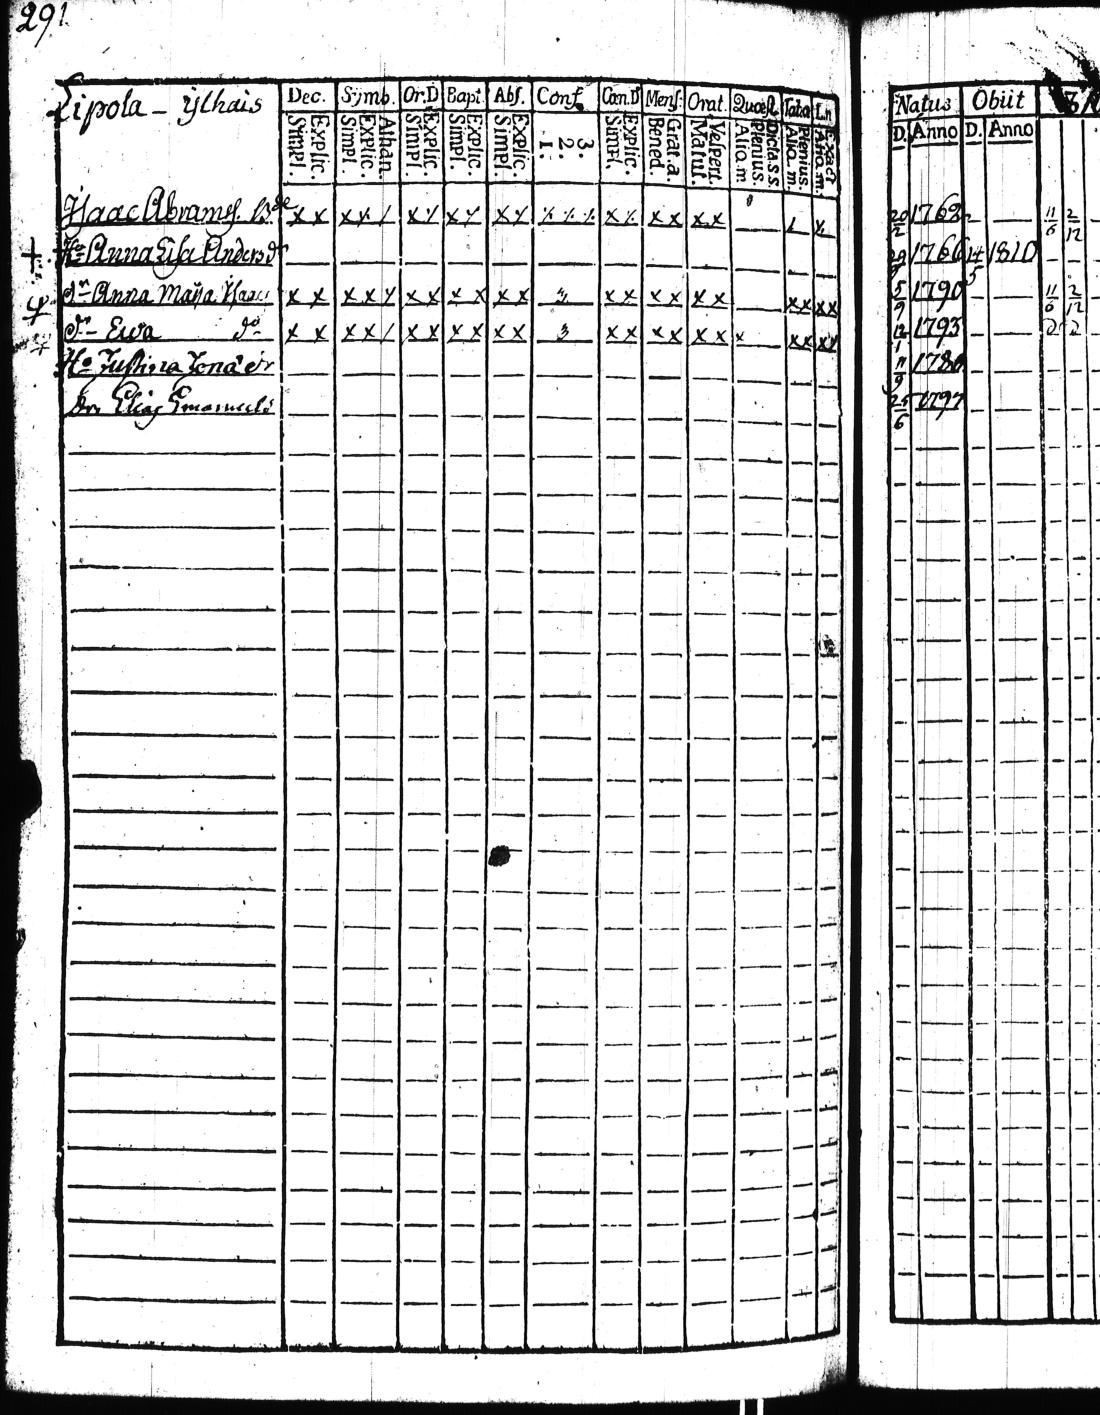 291
Lipola - ylhais
Dec. Symb. Or.D Bapt. Abs. Conf. Cœn.D Mens: Orat. Quæst. Taba Ln
Simpl. Explic. Simpl. Explic. Athan. Simpl. Explic. Simpl. Explic. Simpl. Explic. 1. 2. 3. Simpl. Explic. Bened. Grat.a. Matut. Vespert. Alio.m. Plenius. Dicta.s.s. Alio.m. Plenius. Alio.m. Exact
Natus Obiit
D. Anno D. Anno
Isaac Abrams. x x x x / x x x x x x x x x x 20/2 1762 11/6 2/12
Ho Anna Lisa Anders dr 1766 14/5 1810
dr Anna Maija Isaac x x x x x x x x x x 3 x x x x x x x x x x 5/9 1790 11/6 2/12
dr Ewa do x x x x / x x x x x x 3 x x x x x x x x x x x 1793
Ho Justina Jonæ dr 11/9 1780
Dr Elias Emanuels 25/6 1797